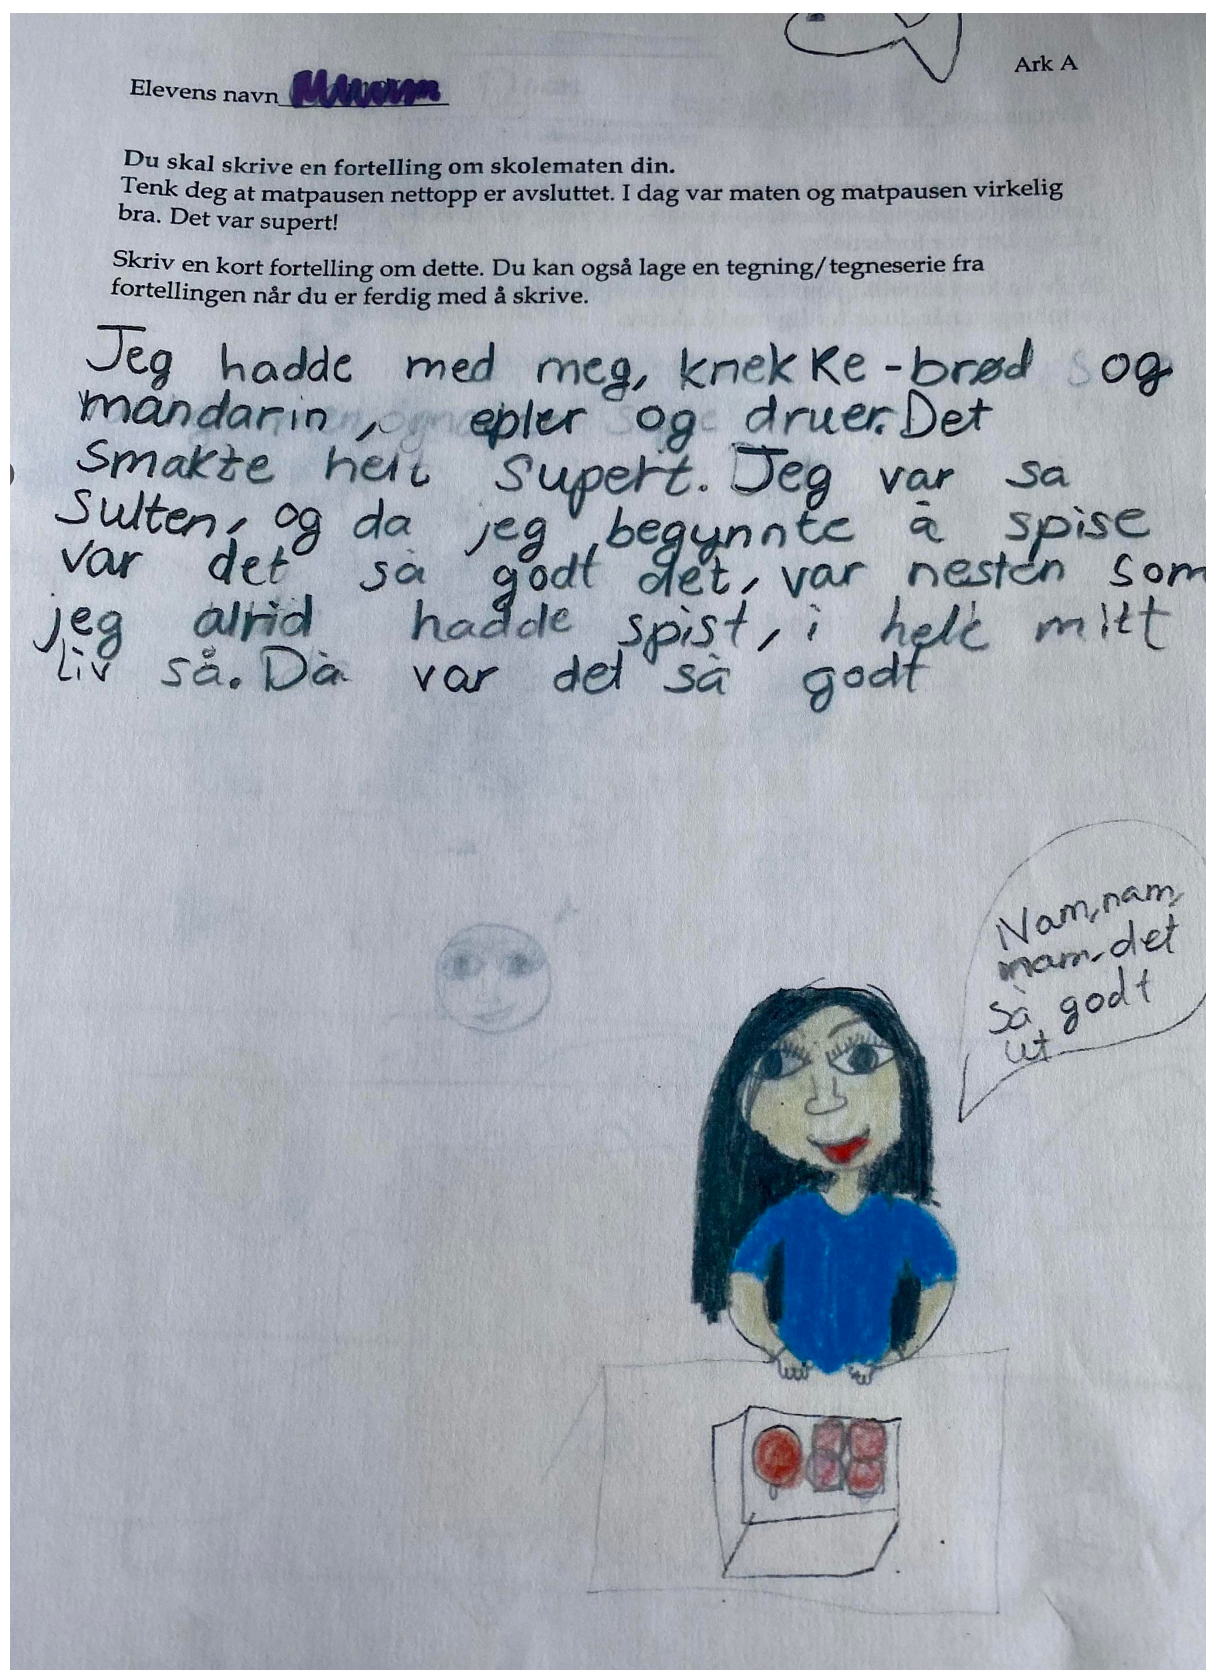 Ark A
Elevens navn
Du skal skrive en fortelling om skolematen din.
Tenk deg at matpausen nettopp er avsluttet. I dag var maten og matpausen virkelig
bra. Det var supert!
Skriv en kort fortelling om dette. Du kan også lage en tegning/tegneserie fra
fortellingen når du er ferdig med å skrive.
Jeg hadde med meg, knekke-brød og
mandarin, epler og druer. Det
Smakte helt supert. Jeg var så
Sulten, og da jeg begynnte å spise
var det så godt det, var nesten som
jeg hadde spist, i helt mitt
liv så. Då var det så godt
Nam, nam,
mam, det
Så godt
ut